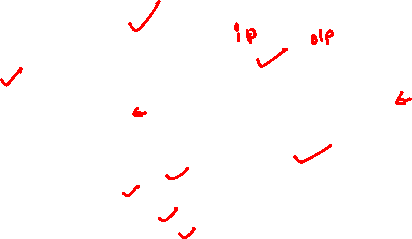 ip o/p